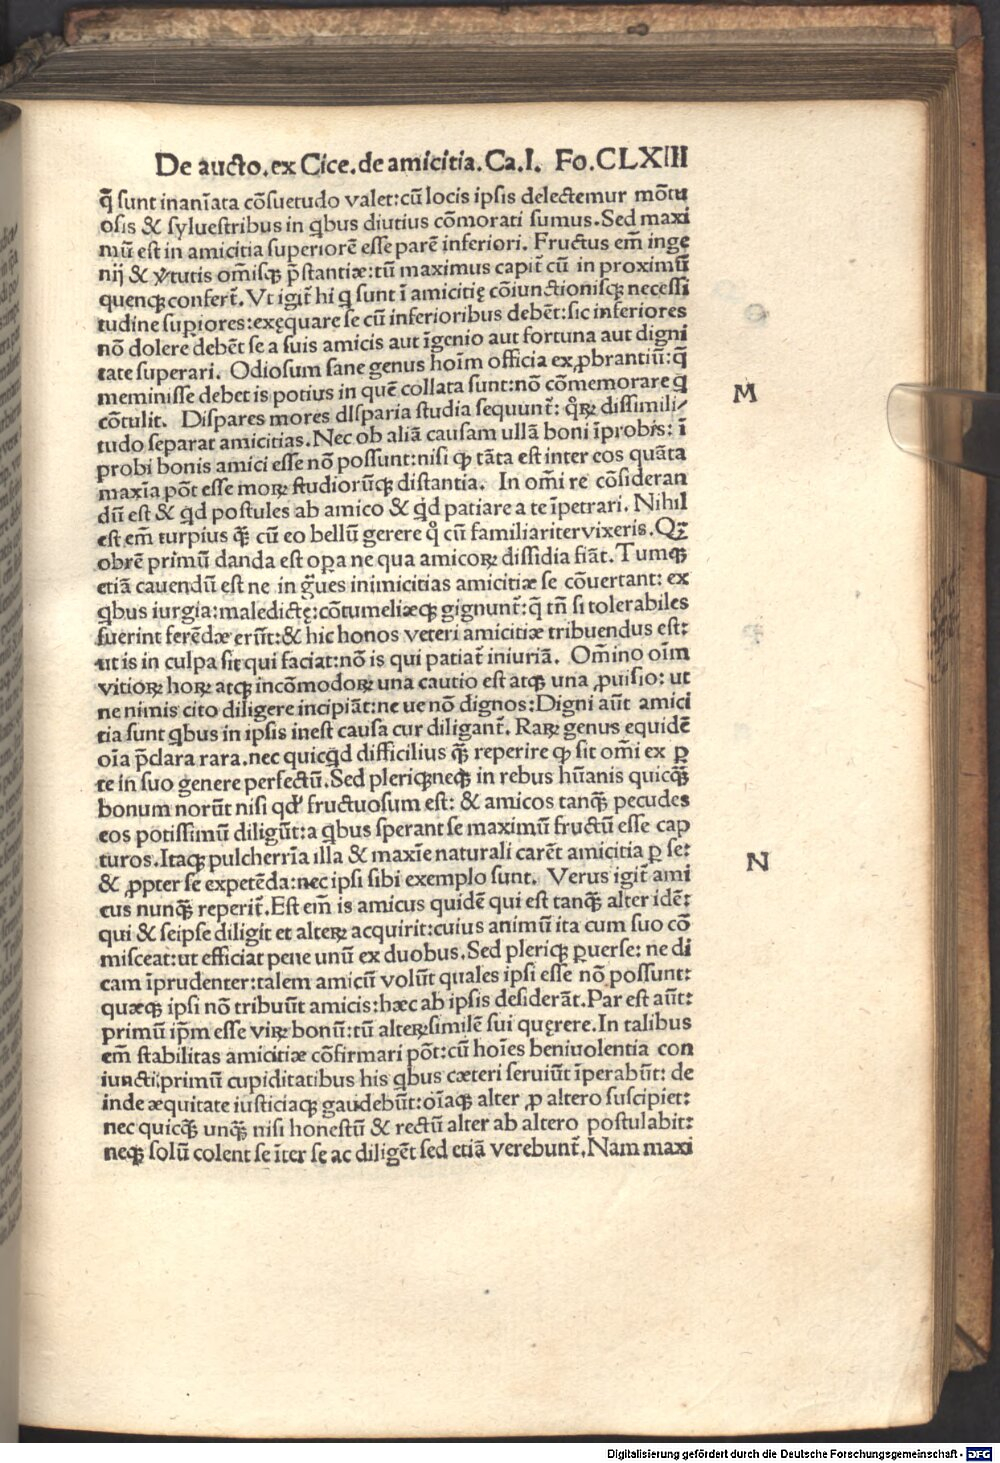 De aucto. ex Cice. de amicitia. Ca. I. Fo. CLXIII
q̄ sunt inanīata cōsuetudo valet: cū locis ipsis delectemur mōtu
osis & syluestribus in qbus diutius cōmorati sumus. Sed maxi
mū est in amicitia superiorē esse parē inferiori. Fructus em̄ inge
nij & v̓tutis om̄isqꝫ p̄stantiæ: tū maximus capit̄ cū in proximū
quenqꝫ confert̄. Vt igit̄ hi q sunt ī amicitię cōiunctionisqꝫ necessi
tudine supiores: exęquare se cū inferioribus debēt: sic inferiores
nō dolere debēt se a suis amicis aut īgenio aut fortuna aut digni
tate superari. Odiosum sane genus hoīm officia exꝓbrantiū: q̄
meminisse debet is potius in quē collata sunt: nō cōmemorare q
cōtulit. Dispares mores dIsparia studia sequunt̄: qͦꝝ dissimili⸗
tudo separat amicitias. Nec ob aliā causam ullā boni īprobis: ī
probi bonis amici esse nō possunt: nisi ꝙ tāta est inter eos quāta
maxīa pōt esse moꝝ studiorūqꝫ distantia. In om̄i re cōsideran
dū est & qd postules ab amico & qd patiare a te īpetrari. Nihil
est em̄ turpius qꝫ̄ cū eo bellū gerere qͦ cū familiariter vixeris. Qꝫ
obrē primū danda est opa ne qua amicoꝝ dissidia fiāt. Tumqꝫ
etiā cauendū est ne in g̈ues inimicitias amicitiæ se cōuertant: ex
qbus iurgia: maledictę: cōtumeliæqꝫ gignunt̄: q̄ tn̄ si tolerabiles
fuerint ferēdæ erūt: & hic honos veteri amicitiæ tribuendus est:
ut is in culpa sit qui faciat: nō is qui patiat̄ iniuriā. Om̄ino oīm
vitioꝝ hoꝝ atqꝫ incōmodoꝝ una cautio est atqꝫ una ꝓuisio: ut
ne nimis cito diligere incipiāt: ne ue nō dignos: Digni aūt amici
tia sunt qbus in ipsis inest causa cur diligant̄. Raꝝ genus equidē
oīa p̄clara rara. nec quicqd difficilius qꝫ̄ reperire ꝙ sit om̄i ex ꝑ
te in suo genere perfectū. Sed pleriqꝫ neqꝫ in rebus hūanis quicqꝫ̄
bonum norūt nisi qd' fructuosum est: & amicos tanqꝫ̄ pecudes
eos potissimū diligūt: a qbus sperant se maximū fructū esse cap
turos. Itaqꝫ pulcherrīa illa & maxīe naturali carēt amicitia ꝑ se:
& ꝓpter se expetēda: nec ipsi sibi exemplo sunt. Verus igit̄ ami
cus nunqꝫ̄ reperit̄. Est em̄ is amicus quidē qui est tanqꝫ̄ alter idē:
qui & seipse diligit et alteꝝ acquirit: cuius animū ita cum suo cō
misceat: ut efficiat pene unū ex duobus. Sed pleriqꝫ ꝑuerse: ne di
cam īprudenter: talem amicū volūt quales ipsi esse nō possunt:
quæqꝫ ipsi nō tribuūt amicis: hæc ab ipsis desiderāt. Par est aūt:
primū ip̄m esse viꝝ bonū: tū alteꝝ similē sui quęrere. In talibus
em̄ stabilitas amicitiæ cōfirmari pōt: cū hoīes beniuolentia con
iuncti: primū cupiditatibus his qbus cæteri seruiūt īperabūt: de
inde æquitate iusticiaqꝫ gaudebūt: oīaqꝫ alter ꝓ altero suscipiet:
nec quicqꝫ̄ unqꝫ̄ nisi honestū & rectū alter ab altero postulabit:
neqꝫ solū colent se īter se ac diligēt sed etiā verebunt̄. Nam maxi
M
N
Digitalisierung gefördert durch die Deutsche Forschungsgemeinschaft - DFG